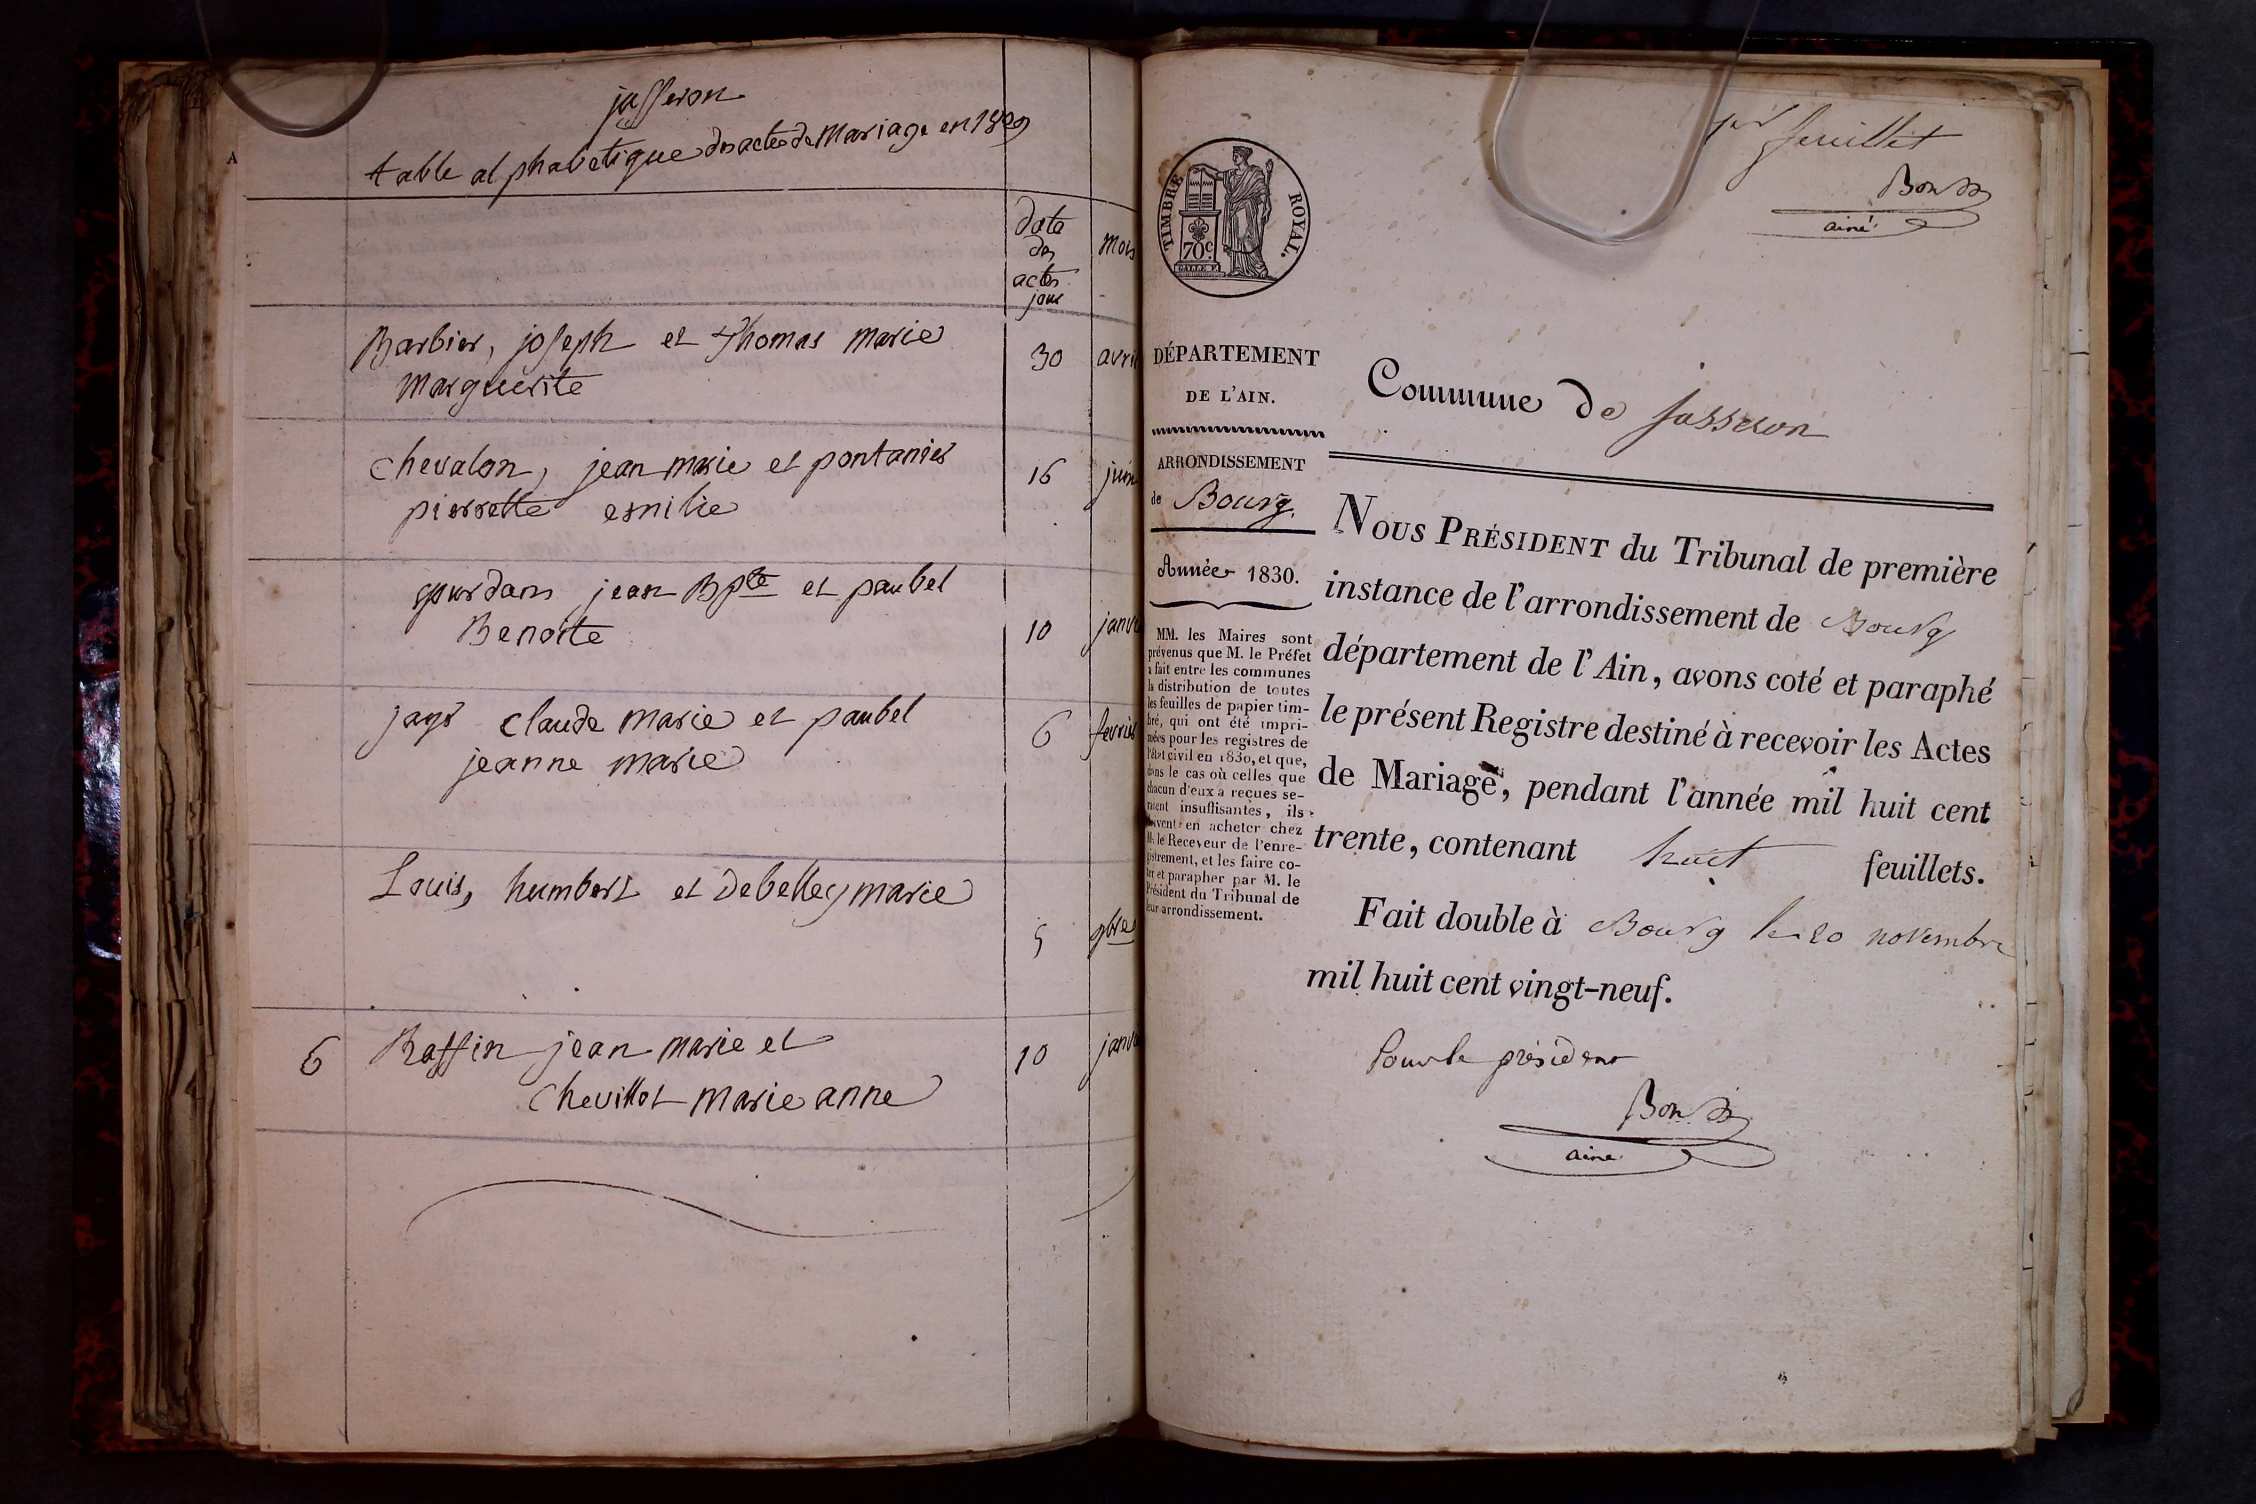 jasseron
table alphabetique des actes de Mariage en 1829
date
des
actes
jour
mois
Barbier, joseph et Thomas marie
marguerite
30 avril
chevalon, jean marie et pontanier
pierrette emilie
16 juin
jourdans jean Bpte et paubel
Benoite
10 janv
jays claude marie et paubel
jeanne marie
6 fevrier
Louis, humbert et Debelley marie
5 9bre
6 Raffin jean marie et
chevillot marie anne
10 janv
1er feuillet
ainé
TIMBRE ROYAL.
70c
DÉPARTEMENT
DE L'AIN.
ARRONDISSEMENT
de Bourg.
Année 1830.
MM. les Maires sont
prévenus que M. le Préfet
a fait entre les communes
la distribution de toutes
les feuilles de papier tim-
bré, qui ont été impri-
mées pour les registres de
l'état civil en 1830, et que,
dans le cas où celles que
chacun d'eux a reçues se-
raient insuffisantes, ils
doivent en acheter chez
M. le Receveur de l'enre-
gistrement, et les faire co-
ter et parapher par M. le
Président du Tribunal de
leur arrondissement.
Commune de Jasseron
NOUS PRÉSIDENT du Tribunal de première
instance de l'arrondissement de Bourg
département de l'Ain, avons coté et paraphé
le présent Registre destiné à recevoir les Actes
de Mariage, pendant l'année mil huit cent
trente, contenant huit feuillets.
Fait double à Bourg le 20 novembre
mil huit cent vingt-neuf.
Pour le président
ainé